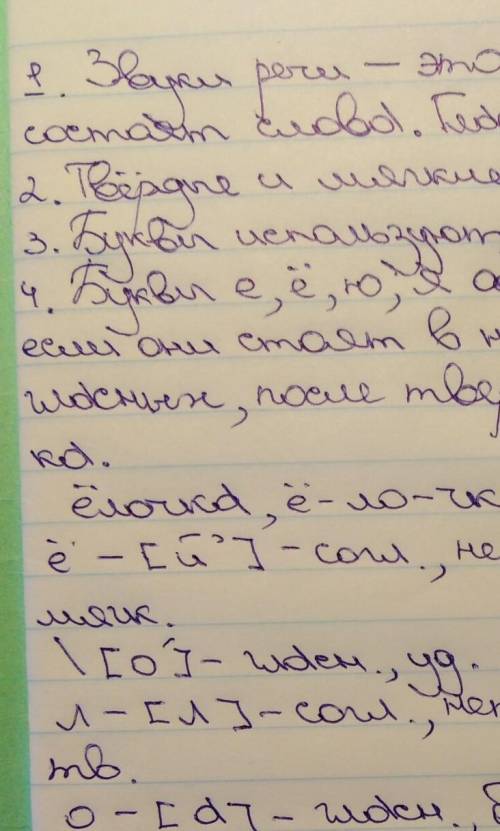 1. Звуки речи – это
состоят слова. Глас
2. Твёрдые и мягкие
3. Буквы используют
4. Буквы е, ё, ю, я о
если они стоят в н
гласных, после твер
ка.
ёлочка, ё-ло-чк
ё – [й’] – согл., не
мягк.
\ [о́] – гласн., уд.
л – [л] – согл., неп
тв.
о – [а] – гласн., б